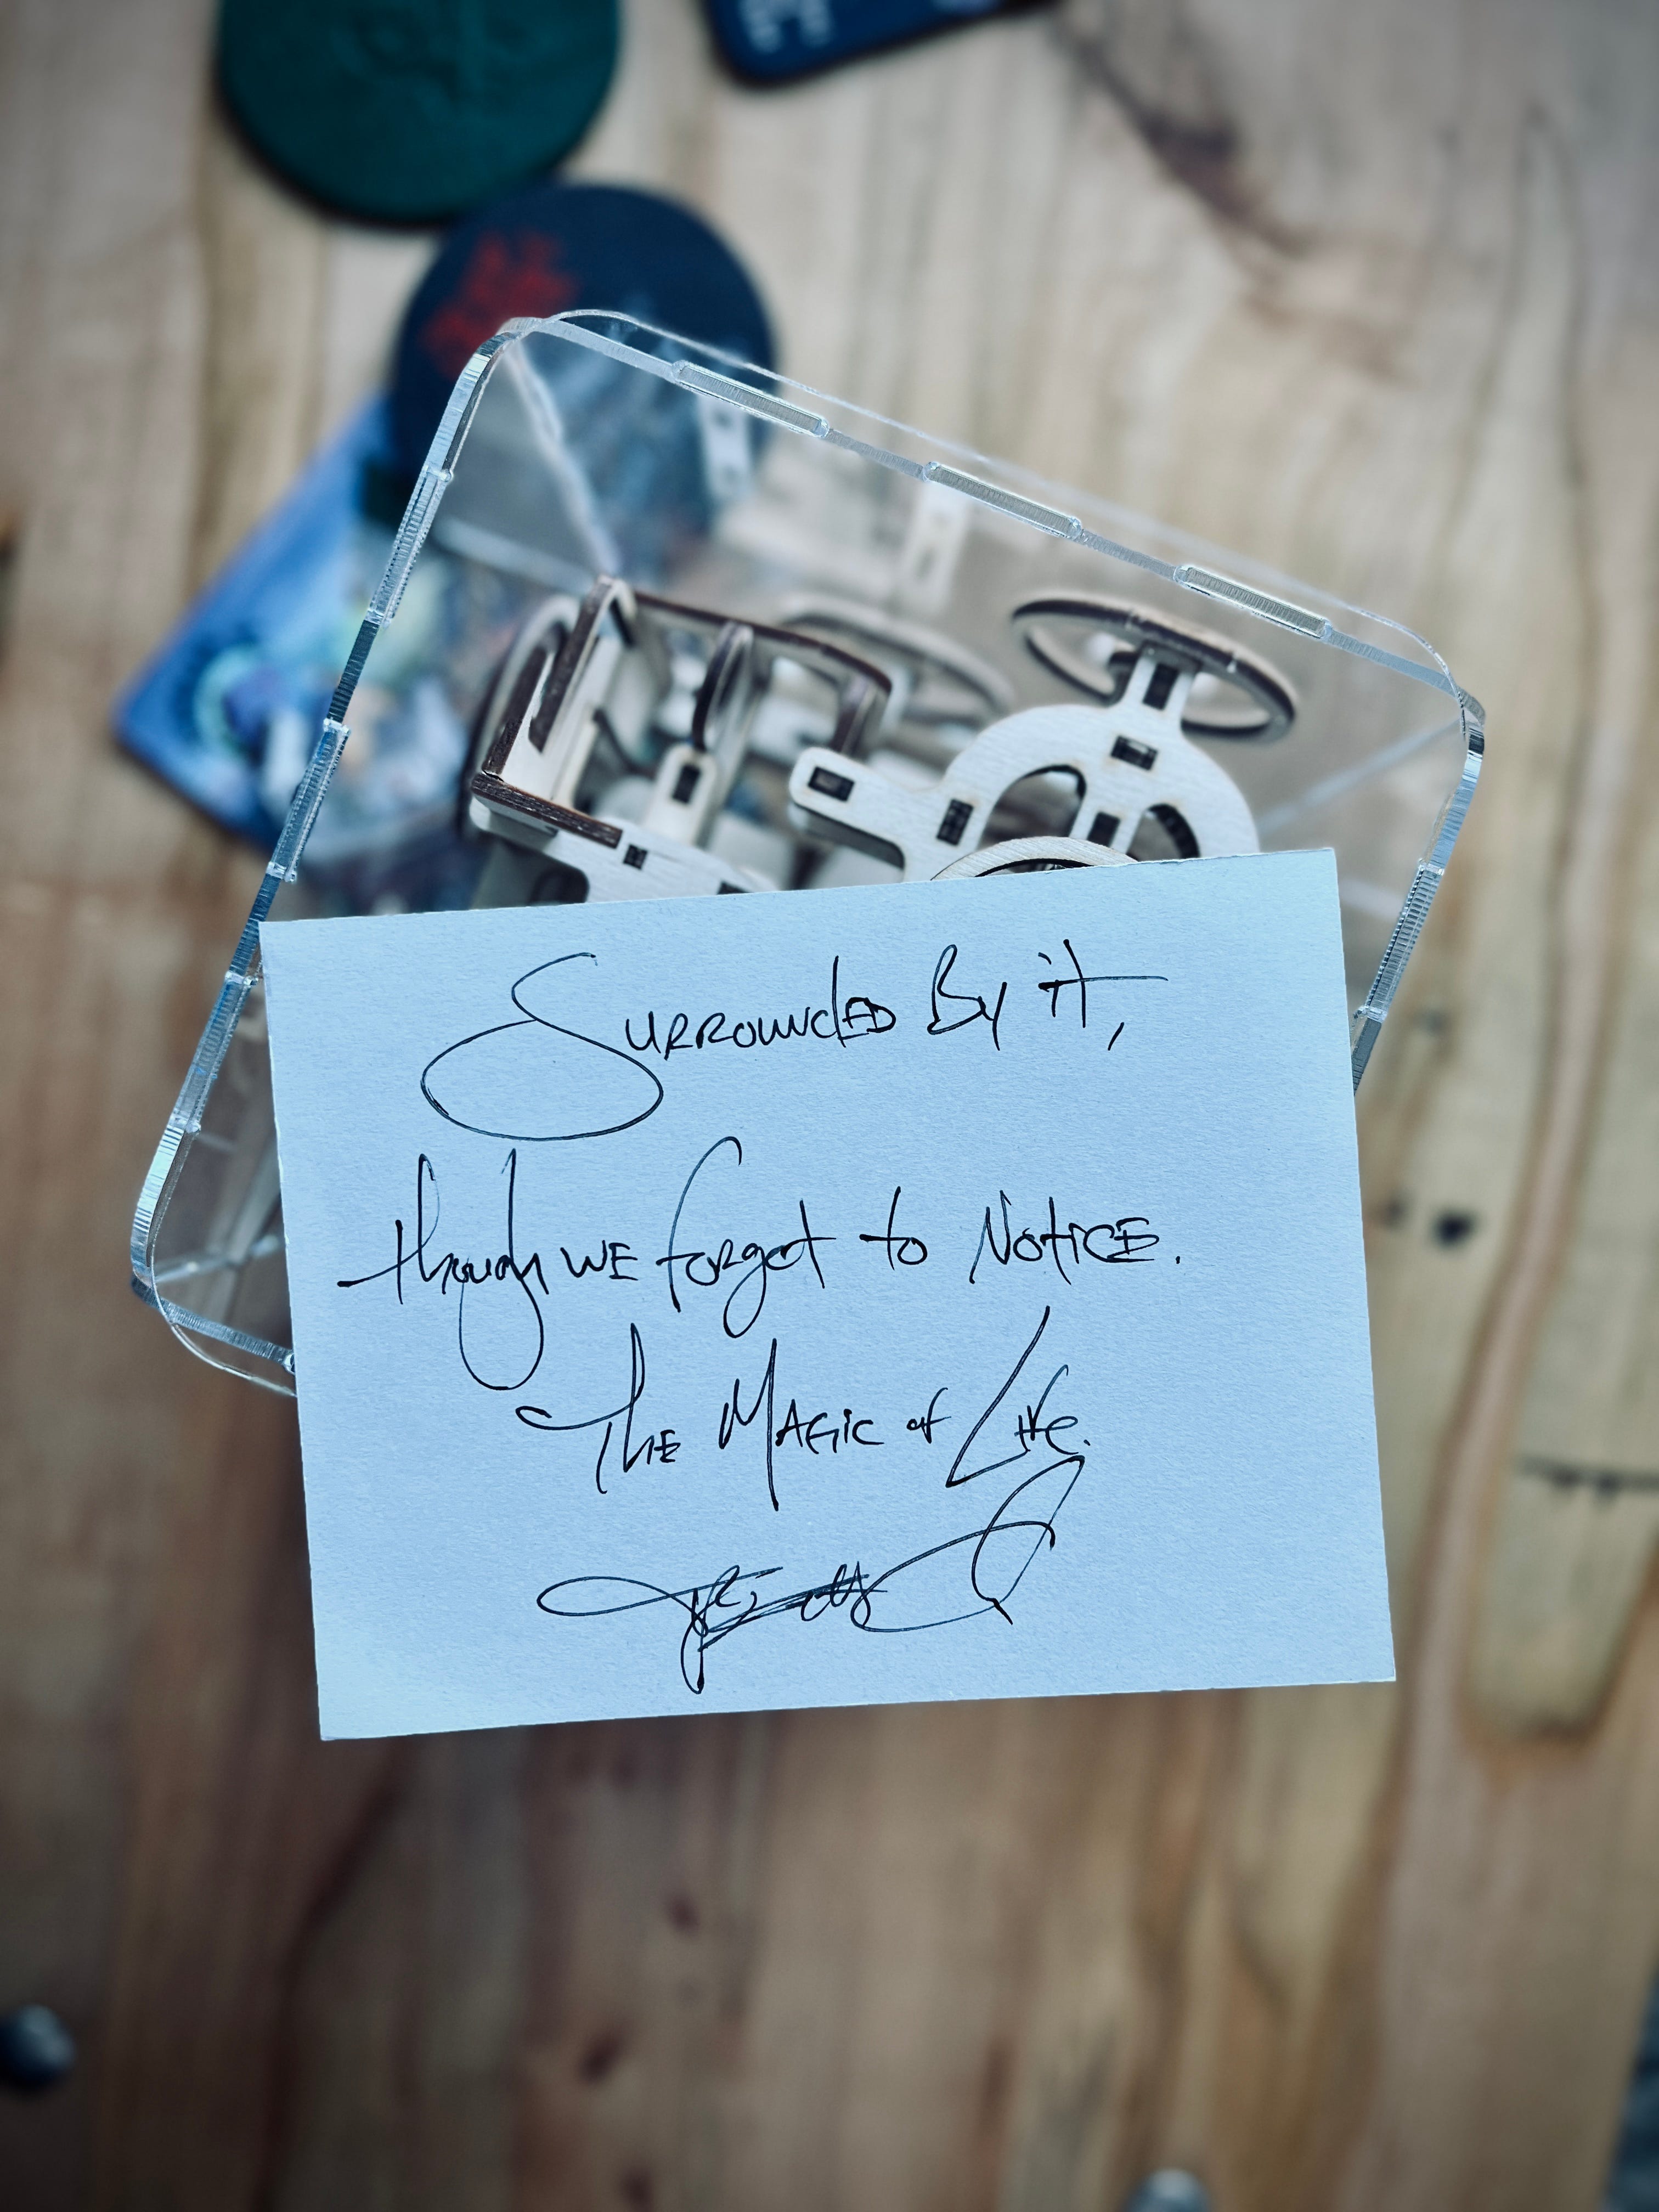 Surrounded By it,
though we forget to Notice.
The Magic of Life.